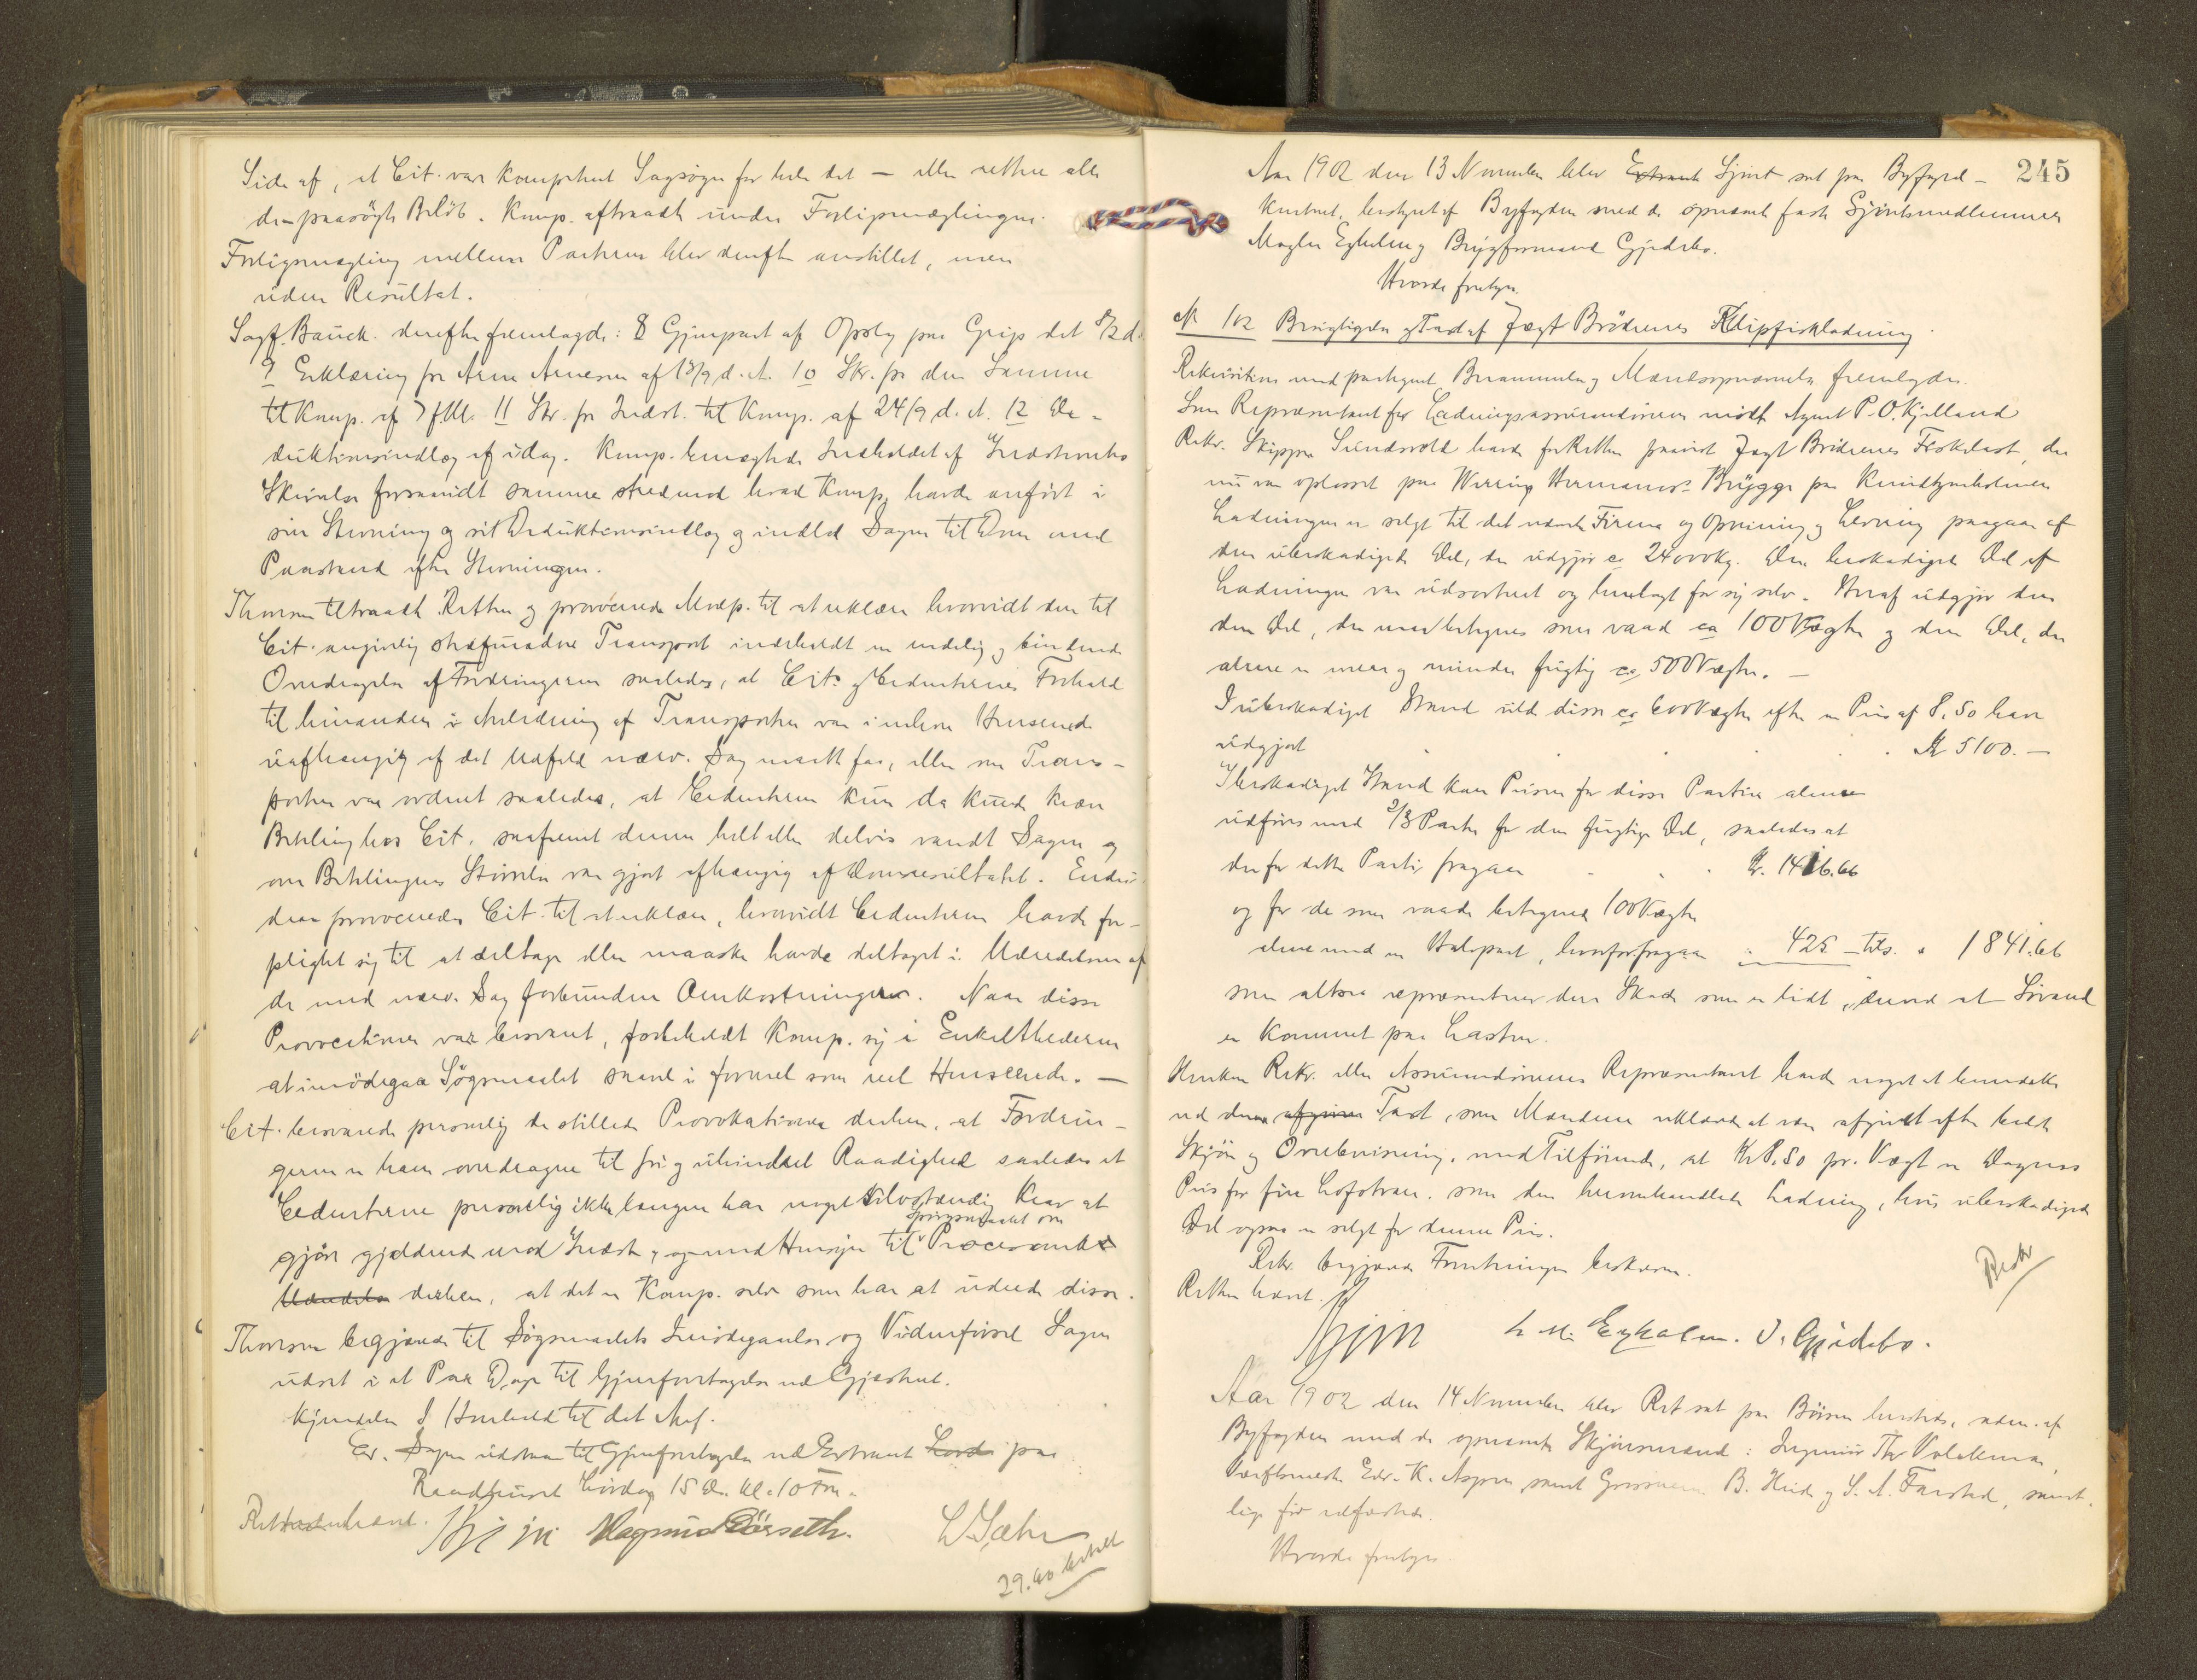 Side af, at Cit. var kompetent Sagsøger for hele det — eller rettere alle
de paasøgte Beløb. Komp. aftraadte under Forligsmæglingen.
Forligsmægling mellem Parterne blev derefter anstillet, men
uden Resultat.
Sagf. Bauck derefter fremlagde: 8 Gjenpart af Opslag paa Grip det
9 Erklæring fra Arne Arnesen af 13/9 d. A. 10 Skr. fra den Samme
til Komp. af 7 f. M. 11 Skr. fra Indst. til Komp. af 24/9 d. A. 12 De-
duktionsindlæg af idag. Komp. benægtede Indholdet af Indstevntes
Skrivelse forsaavidt samme stred mod hvad Komp. havde anført i
sin Stevning og sit Deduktionsindlæg og indlod Sagen til Dom med
Paastand efter Stevningen.
Thomsen tiltraadte Retten og provocerede Modp. til at erklære hvorvidt den til
Cit. angivelig stedfundne Transport indeholdt en endelig og bindende
Overdragelse af Fordringerne saaledes, at Cits. og Cedenternes Forhold
til hinanden i Anledning af Transporten var i enhver Henseende
uafhængig af det Udfald nærv. Sag maatte faa, eller om Trans-
porten var ordnet saaledes, at Cedenterne kun da kunde kræve
Betaling hos Cit. saafremt denne helt eller delvis vandt Sagen og
om Betalingens Størrelse var gjort afhængig af Domsresultatet. Endvi-
dere provoceredes Cit. til at erklære, hvorvidt Cedenterne havde for-
pligtet sig til at deltage eller maaske havde deltaget i Udredelsen af
de med nærv. Sag forbundne Omkostninger. Naar disse
Provocationer var besvaret, forbeholdt Komp. sig i Enkelthederne
at imødegaa Søgsmaalet saavel i formel som reel Henseende. —
Cit. besvarede personlig de stillede Provokationer derhen, at Fordrin-
gerne er ham overdragne til fri og uhindret Raadighed saaledes at
Cedenterne personlig ikke længer har noget selvstændig Krav at
spørgsmaalet om
gjøre gjældende mod Indst., og med Hensyn til Procesomk.
Udredelse derhen, at det er Komp. selv som har at udrede disse.
Thomsen begjærede til Søgsmaalets Imødegaaelse og Vidneførsel Sagen
udsat i et Par Dage til Gjenforetagelse ved Gjæsteret.
Kjendelse I Henhold til det Anf.
Er. Sagen udstaar til Gjenforetagelse ved Extraret Lørda paa
Raadhuset Lørdag 15 ds. kl. 10 Fm.
Retten hævet. Magnus Dørseth.
29.40 betalt
245
Aar 1902 den 13 November blev Extraret Sjøret sat paa Byfoged-
kontoret, bestyret af Byfogden med de opnævnte faste Sjøretsmedlemmer
Mægler Egholm og Bryggformand Gjedebo.
Hvorda foretoges
No 102 Besigtigelse og Taxt af Jægt Brødrenes Klipfiskladning
Rekvisition med paategnet Berammelse og Mændsopnævnelse fremlagdes.
Som Repræsentant for Ladningsassurandørerne mødte Agent P. O. Kjelland
Rekv. Skipper Sundsvold havde for Retten paavist Jagt Brødrenes Fiskelast, der
nu var oplosset paa Werring Hermansens Brygge paa Knudtzonholmen
Ladningen er solgt til det nævnte Firma og Opveining og Levering paagaar af
den ubeskadigede Del, der udgjør ca 24000 kg. Den beskadigede Del af
Ladningen var udsorteret og henlagt for sig selv. Heraf udgjør den
den Del, der maa betegnes som vaad ca 100 Vægter og den Del, der
alene er mere og mindre fugtig ca 500 Vægter. —
I ubeskadiget Stand vilde disse ca 600 Vægter efter en Pris af 8,50 have
udgjort . . . . Kr 5100.—
I beskadiget Stand kan Prisen for disse Partier alene
udføres med 2/3 Parter for den fugtige Del, saaledes at
der for dette Parti fragaar . . Kr. 1416.66
og for de som vaade betegnede 100 Vægter
alene med en Halvpart, hvorfor fragaar " 425 – tils. " 1841.66
som altsaa repræsenterer den Skade som er lidt, derved at Søvand
er kommet paa Lasten.
Hverken Rekv. eller Assurandørernes Repræsentant havde noget at bemærke
ved denne afgivne Taxt, som Mændene erklærede at være afgivet efter bedste
Skjøn og Overbevisning, med Tilføiende, at Kr 8,50 pr. Vægt er Dagens
Pris for fin Lofotvare, som den heromhandlede Ladning, hvis ubeskadigede
Del ogsaa er solgt for denne Pris.
Rekv. begjærede Forretningen beskreven.
Retten hævet.
Besk
L. M. Egholm. O. Gjedebo.
Aar 1902 den 14 November blev Ret sat paa Børsen hersteds, adm. af
Byfogden med de opnævnte Skjønsmænd: Ingeniør Thr
Værftsmester Edv. K. Aspen samt Grosserer B. og S. A. Farstad, samt-
lige før edfæstede.
Hvorda foretoges